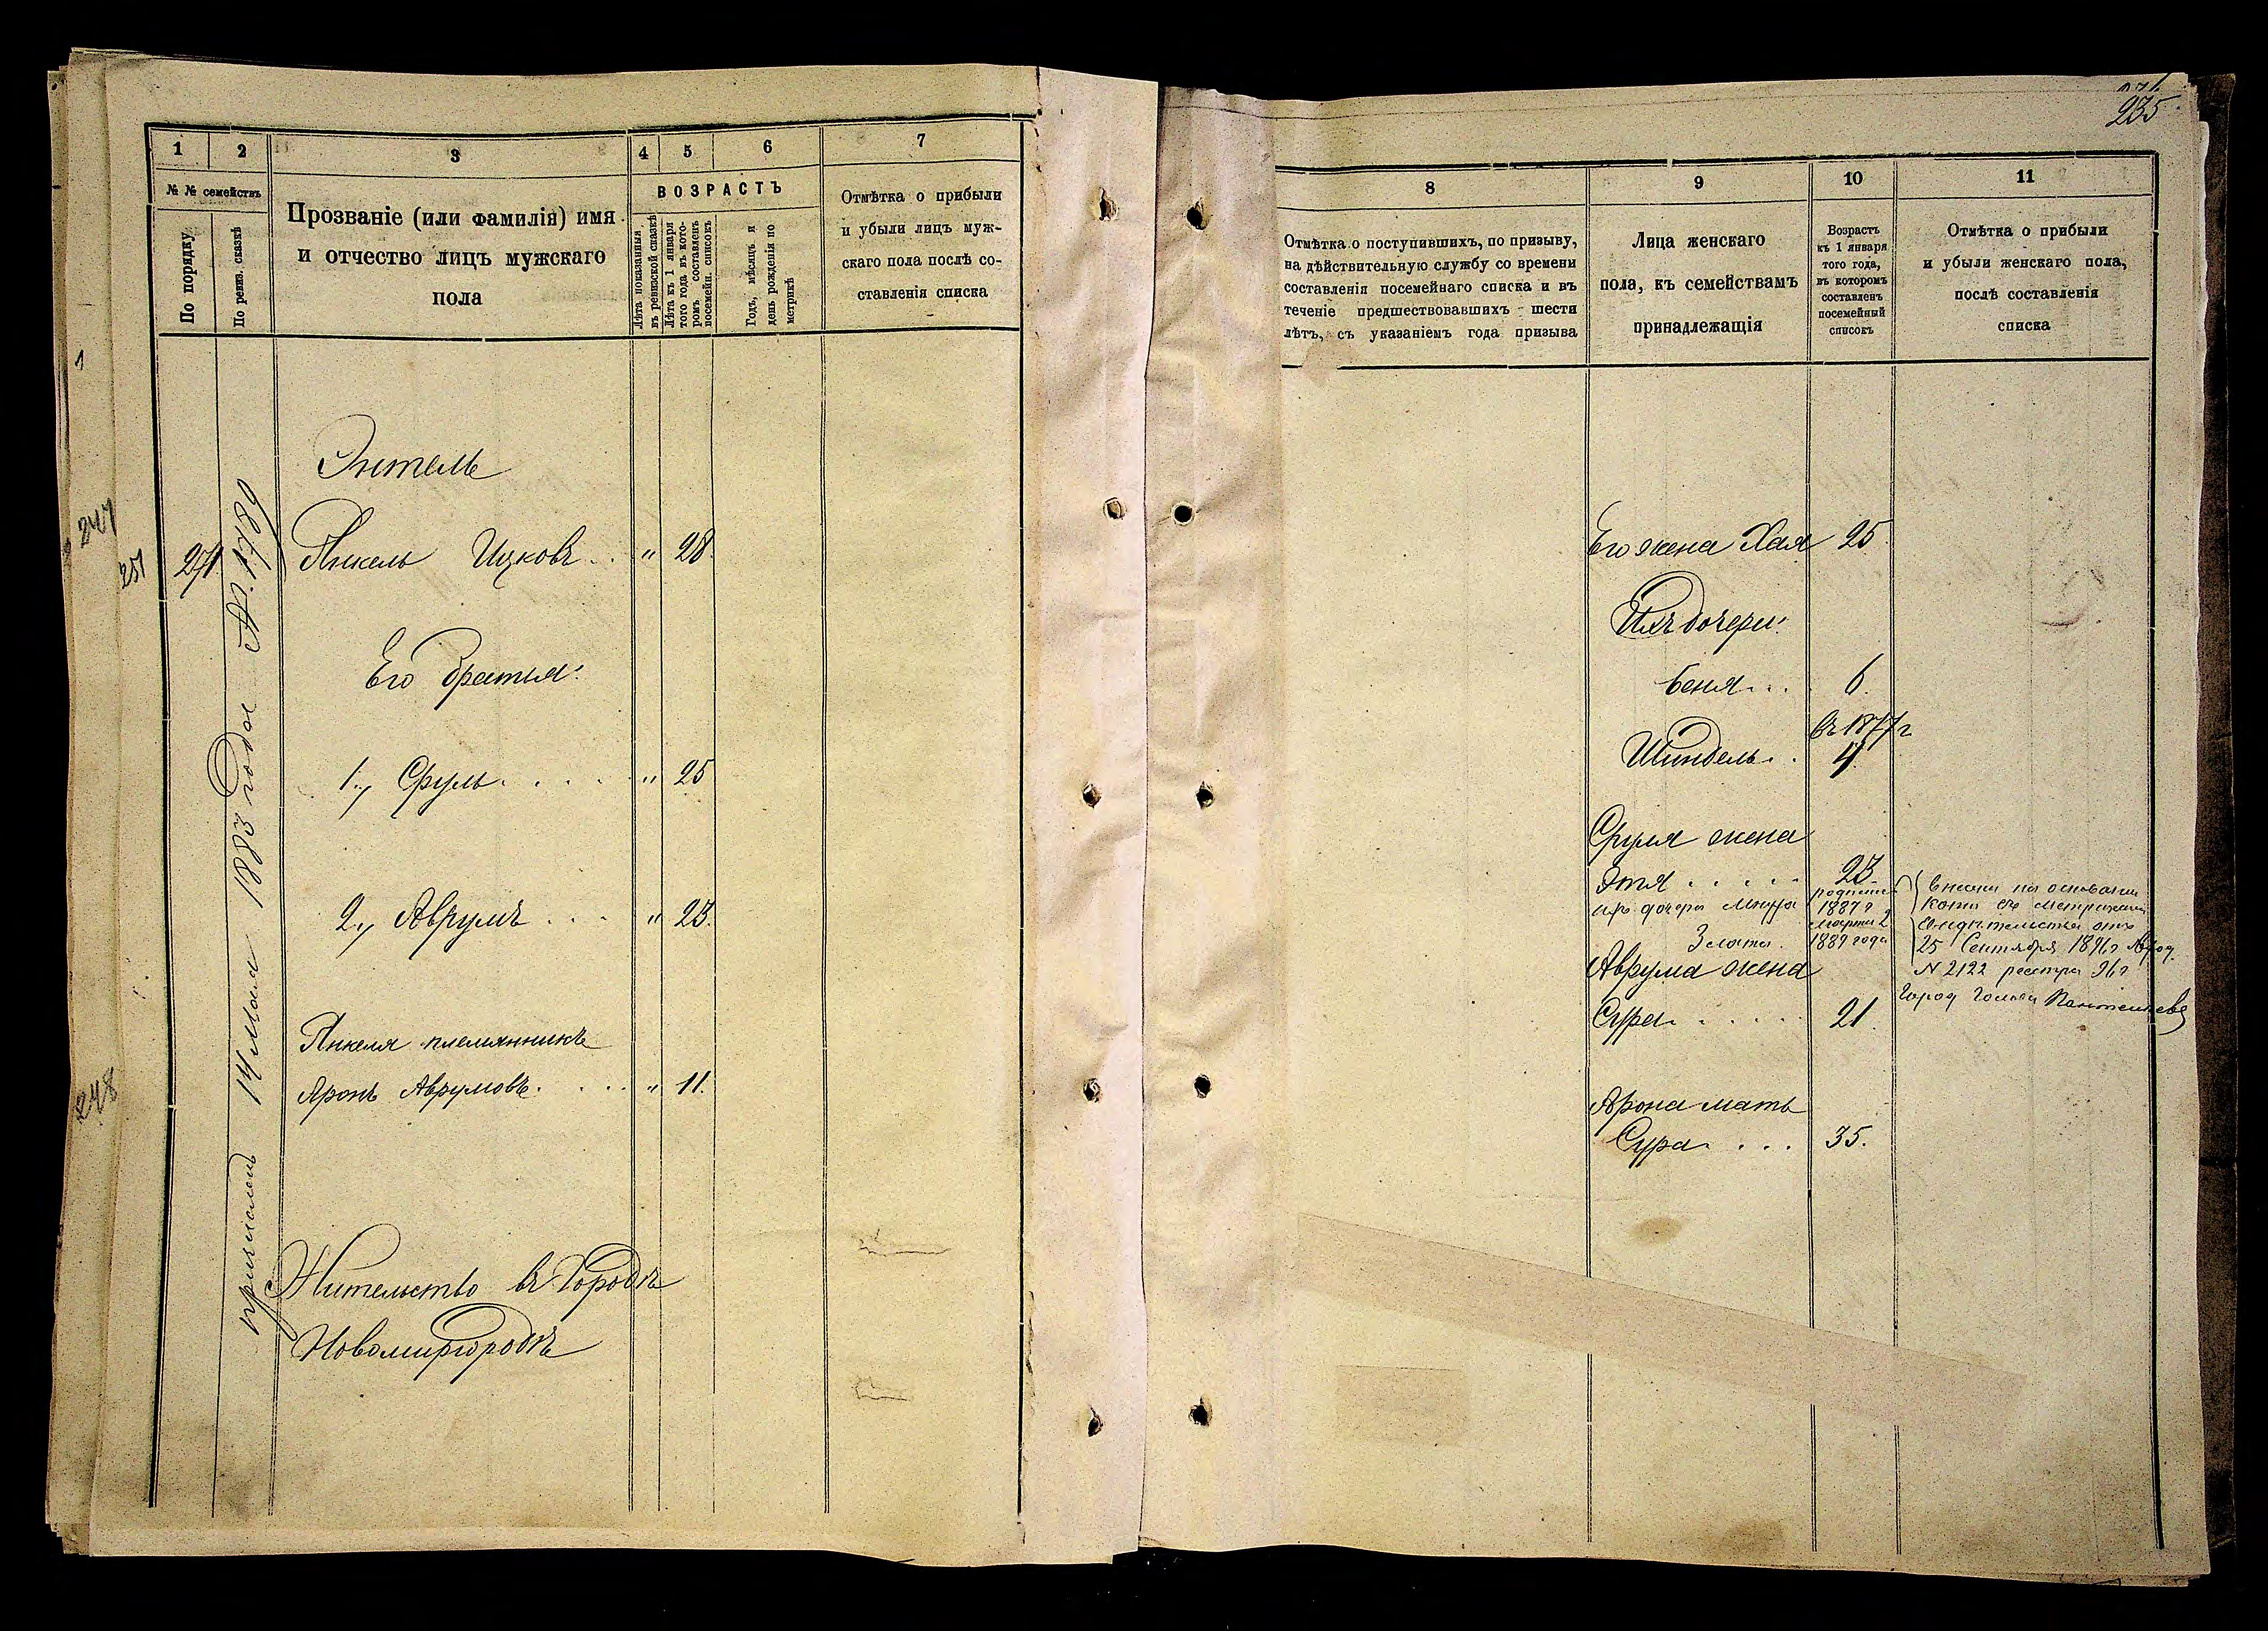 235
1
2
3
4
5
6
7
№ № семействъ
По порядку
По ревиз. сказкѣ
Прозваніе (или фамилія) имя
и отчество лицъ мужскаго
пола
ВОЗРАСТЪ
Лѣта показанныя
въ ревизской сказкѣ
Лѣта къ 1 января
того года въ кото-
ромъ составленъ
посемейн. списокъ
Годъ, мѣсяцъ и
день рожденія по
метрикѣ
Отмѣтка о прибыли
и убыли лицъ муж-
скаго пола послѣ со-
ставленія списка
1
247
251
271
248
причисленъ 14 Мая 1883 года № 1789
Энтель
Янкель Ицковъ . . " 28.
Его братья:
1., Сруль . . . . . " 25
2., Аврумъ . . . " 23.
Янкеля племянникъ
Аронъ Аврумовъ . . . . " 11.
Жительство въ Городѣ
Новомиргородѣ
8
9
10
11
Отмѣтка о поступившихъ, по призыву,
на дѣйствительную службу со времени
составленія посемейнаго списка и въ
теченіе предшествовавшихъ шести
лѣтъ, съ указаніемъ года призыва
Лица женскаго
пола, къ семействамъ
принадлежащія
Возрастъ
къ 1 января
того года,
въ которомъ
составленъ
посемейный
списокъ
Отмѣтка о прибыли
и убыли женскаго пола,
послѣ составленія
списка
Его жена Хая 25.
Ихъ дочери:
Беня . . . 6.
въ 1877 г
Шиндель . . 4.
Сруля жена
Этя . . . . . 23.
ихъ дочери
1887 г
Марта 2
Злата. 1889 года
внесены на основаніи
копіи съ метрическ
свидѣтельства отъ
25 Сентября 1896 г
N 2122 реестра 96 г
Город Голова
Аврума жена
Сура . . . . . . 21.
Арона мать
Сура . . . . 35.